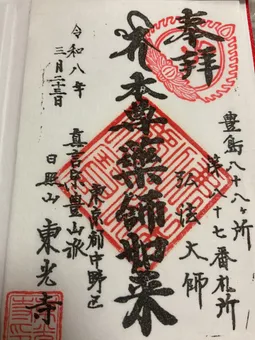 奉拝
豊島八八ヶ所
第八十七番札所
弘法大師
本尊薬師如来
東京都中野区
真言宗豊山派
日照山 東光寺
令和八年
三月二十三日